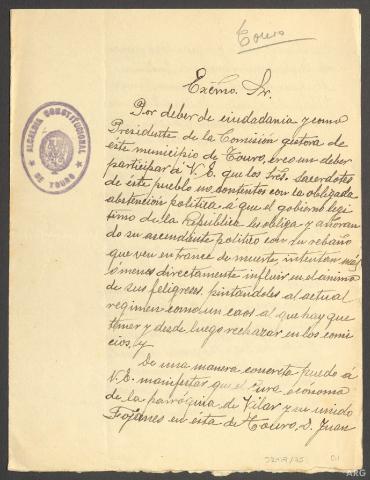 Touro
Excmo. Sr.
ALCALDIA CONSTITUCIONAL
DE TOURO
Por deber de ciudadania y como
Presidente de la Comisión gestora de
éste municipio de Touro, creo un deber
participar á V.E. que los Sres. Sacerdotes
de este pueblo no contentos con la obligada
abstención politica á que el gobierno legi
timo de la República les obliga y añoran
do su ascendiente politico con su rebaño
que ven en trance de muerte, intentan más
ó menos directamente influir en el animo
de sus feligreses, pintandoles al actual
regimen como un caos al que hay que
temer y desde luego rechazar en los comi
cios.
De una manera concreta puedo á
V.E. manifestar que el Cura ecónomo
de la parróquia de Vilar y su unido
Fojanes en ésta de Touro, D. Juan
ARG